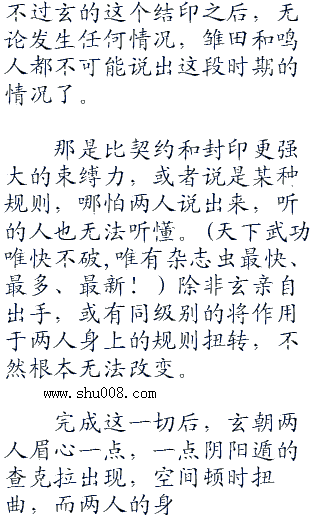 不过玄的这个结印之后，无
论发生任何情况，雏田和鸣
人都不可能说出这段时期的
情况了。
那是比契约和封印更强
大的束缚力，或者说是某种
规则，哪怕两人说出来，听
的人也无法听懂。(天下武功
唯快不破,唯有杂志虫最快、
最多、最新！)除非玄亲自
出手，或有同级别的将作用
于两人身上的规则扭转，不
然根本无法改变。
www.shu008.com
完成这一切后，玄朝两
人眉心一点，一点阴阳遁的
查克拉出现，空间顿时扭
曲，而两人的身